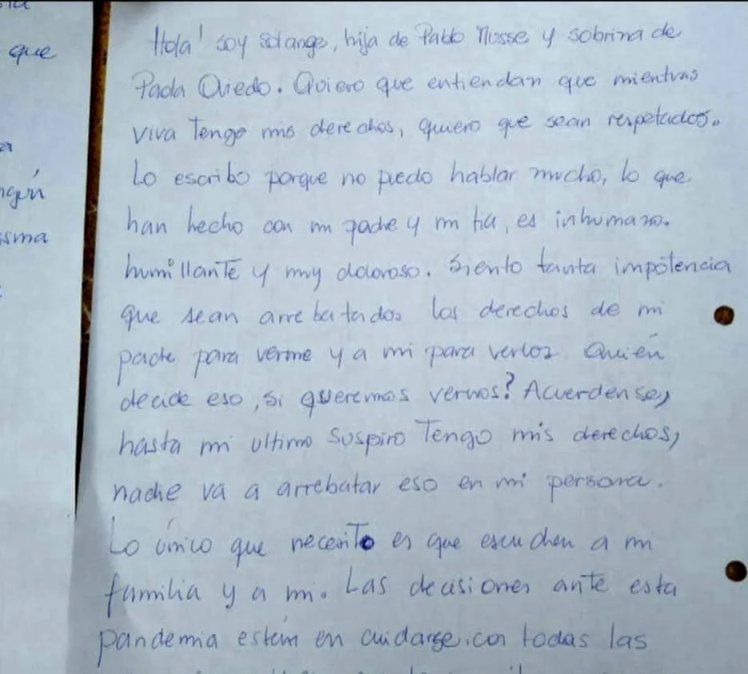 que
a
ngún
isma
Hola! soy Solange, hija de Pablo Musse y sobrina de
Paola Oviedo. Quiero que entiendan que mientras
viva Tengo mis derechos, quiero que sean respetados.
Lo escribo porque no puedo hablar mucho, lo que
han hecho con mi padre y mi tia, es inhumano.
humillanTe y muy doloroso. Siento tanta impotencia
que sean arrebatados los derechos de mi
padre para verme y a mi para verlos. Quien
decide eso, si queremos vernos? Acuerdense,
hasta mi ultimo suspiro Tengo mis derechos,
nadie va a arrebatar eso en mi persona.
Lo único que necesiTo es que escuchen a mi
familia y a mi. Las decisiones ante esta
pandemia están en cuidarse, con todas las